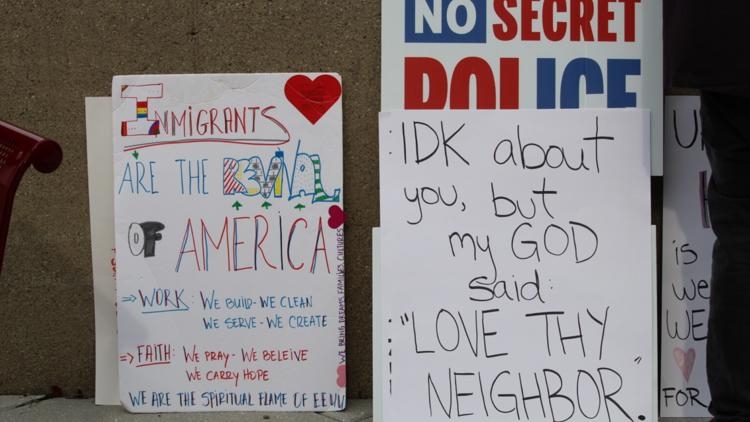 INMIGRANTS
ARE THE REVIVAL
OF AMERICA
⇒ WORK: WE BUILD - WE CLEAN
WE SERVE - WE CREATE
⇒ FAITH: WE PRAY - WE BELEIVE
WE CARRY HOPE
WE ARE THE SPIRITUAL FLAME OF EEUU
WE BRING DREAMS FAMILIES CULTURES
NO SECRET
POLICE
IDK about
you, but
my GOD
said:
"LOVE THY
NEIGHBOR."
is
we
WE
FOR